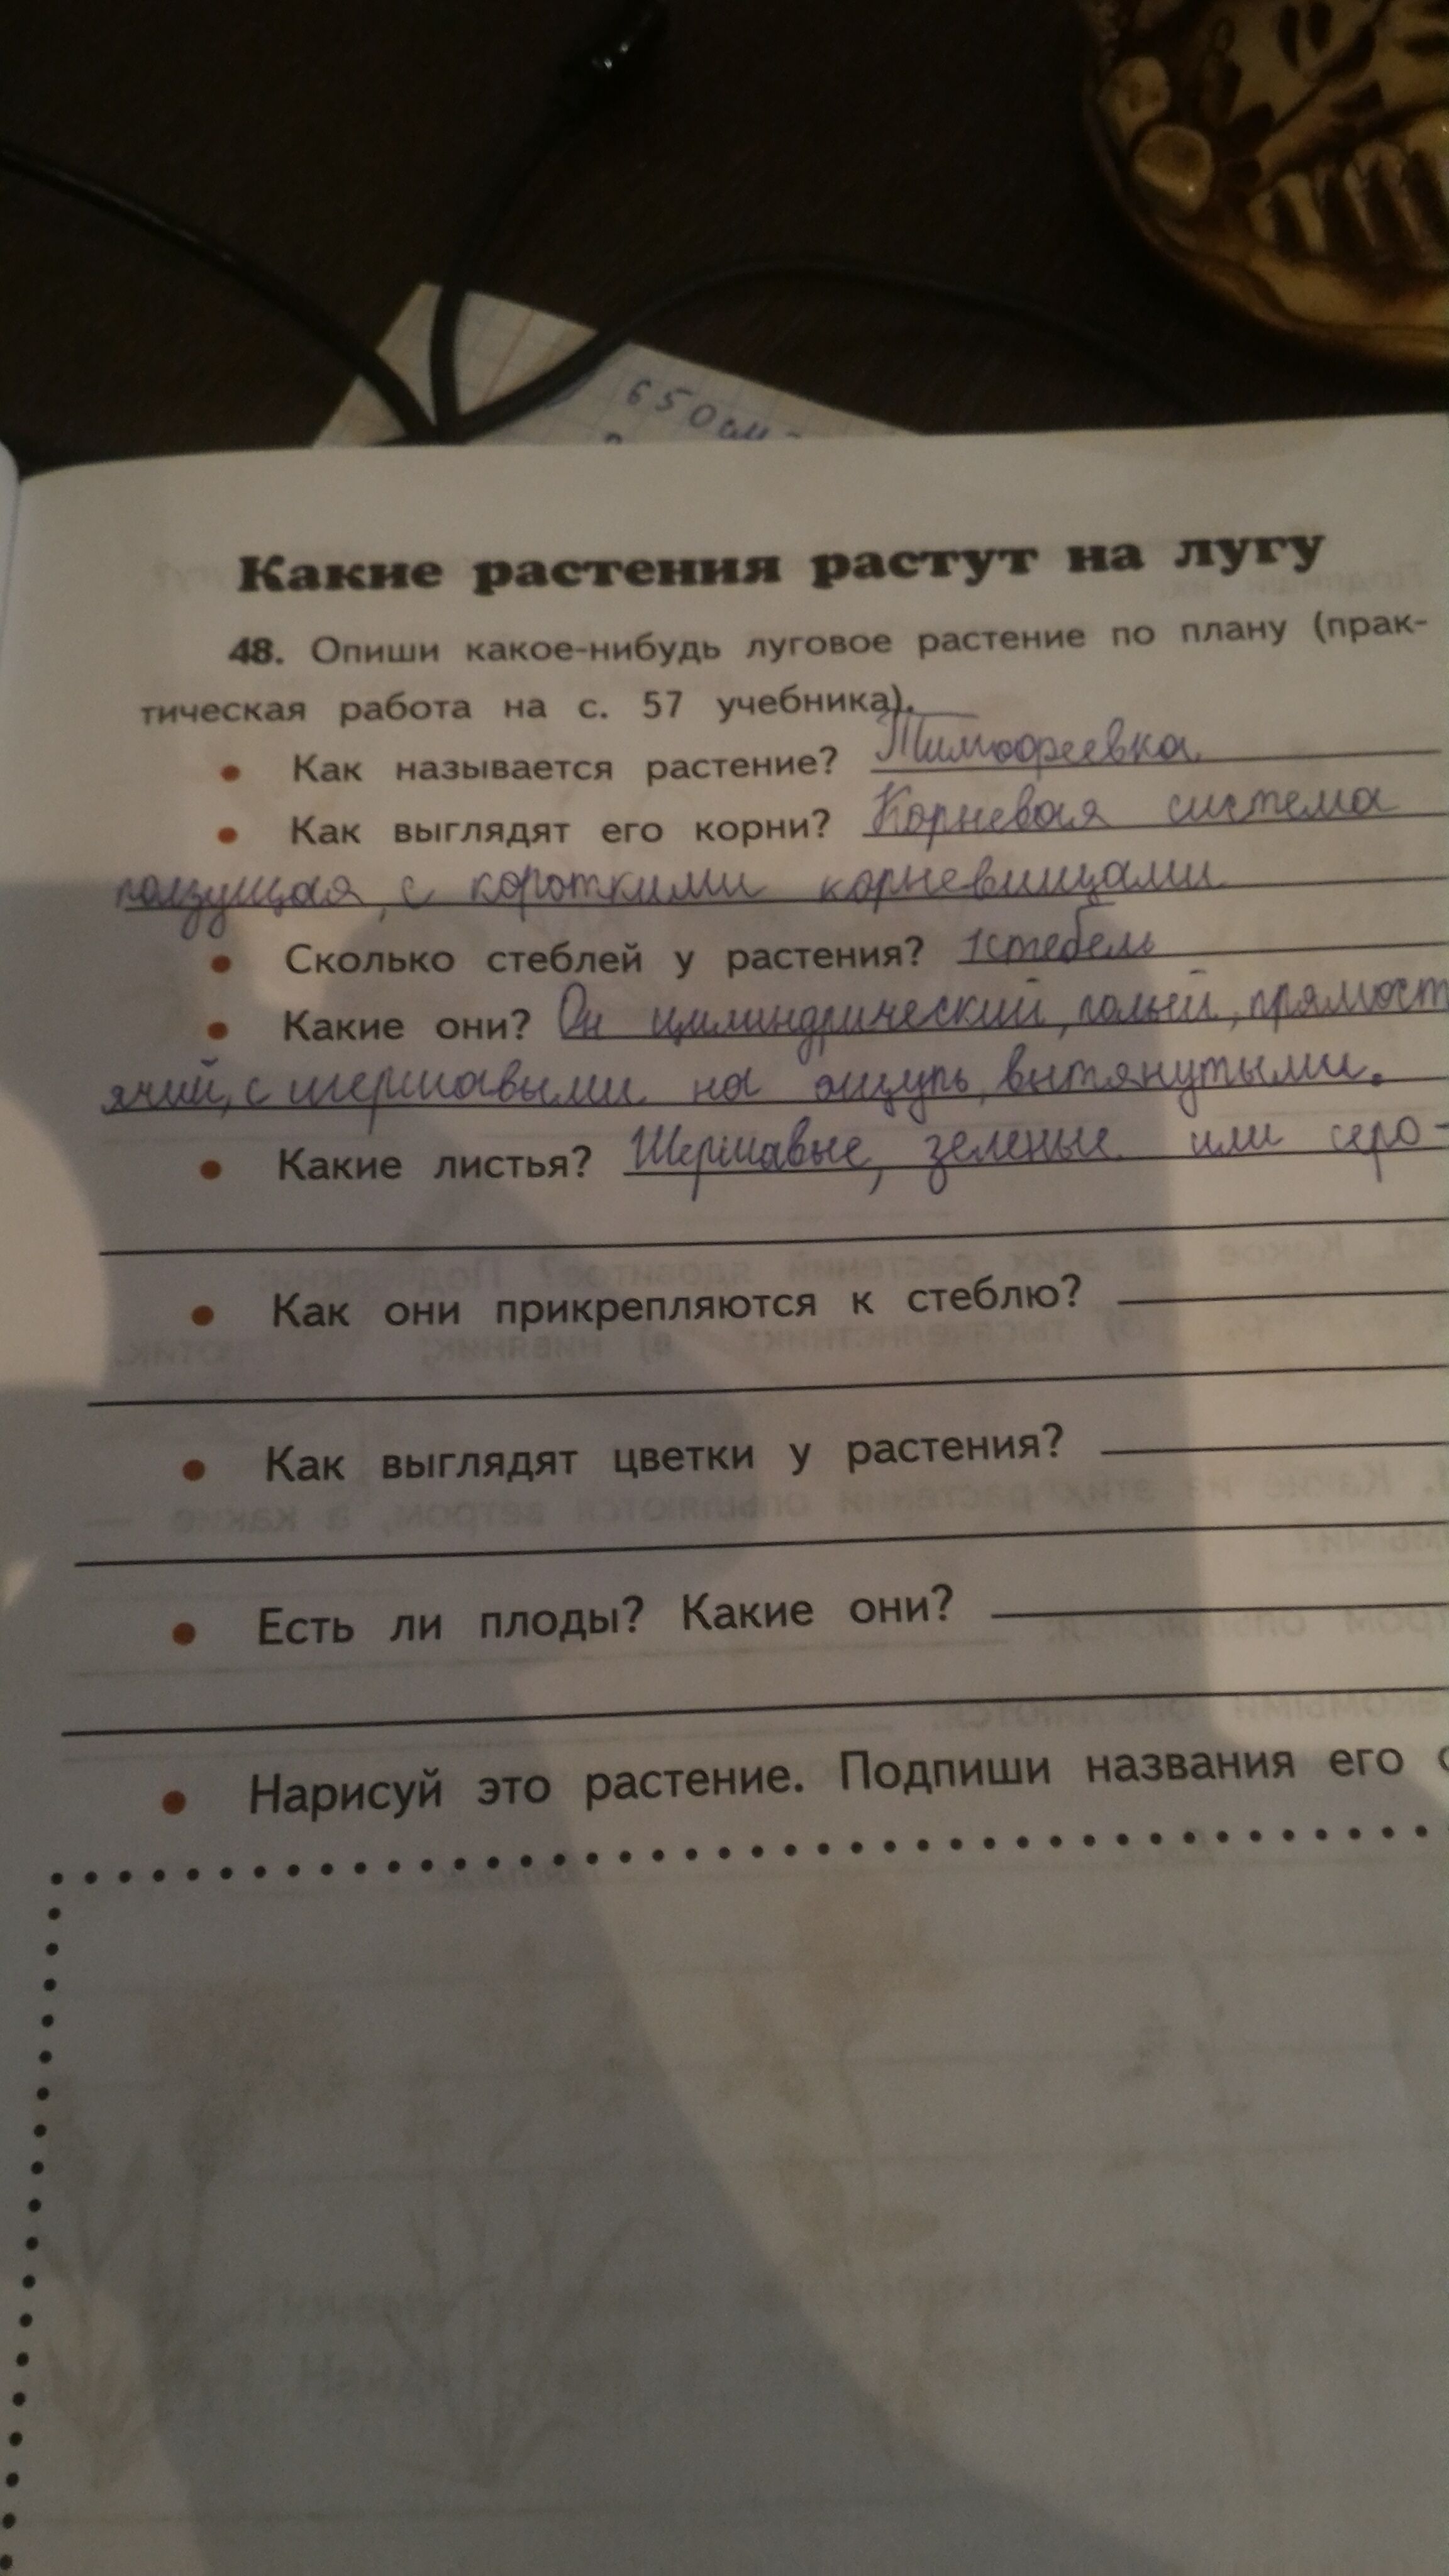 650 см
Какие растения растут на лугу
48. Опиши какое-нибудь луговое растение по плану (прак-
тическая работа на с. 57 учебника).
• Как называется растение? Тимофеевка
• Как выглядят его корни? Корневая система
ползущая, с короткими корневищами
• Сколько стеблей у растения? 1 стебель
• Какие они? Он цилиндрический, голый, прямост
ячий, с шершавыми на ощупь, вытянутыми.
• Какие листья? Шершавые, зеленые или серо-
• Как они прикрепляются к стеблю?
• Как выглядят цветки у растения?
• Есть ли плоды? Какие они?
• Нарисуй это растение. Подпиши названия его